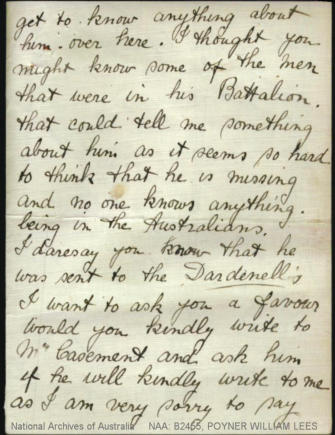 get to know anything about
him. over here. I thought you
might know some of the men
that were in his Battalion.
that could tell me something
about him as it seems so hard
to think that he is missing
and no one knows anything.
being in the Australians.
I daresay you know that he
was sent to the Dardenell's
I want to ask you a favour
would you kindly write to
Mr Casement and ask him
if he will kindly write to me
as I am very sorry to say
National Archives of Australia NAA: B2455, POYNER WILLIAM LEES